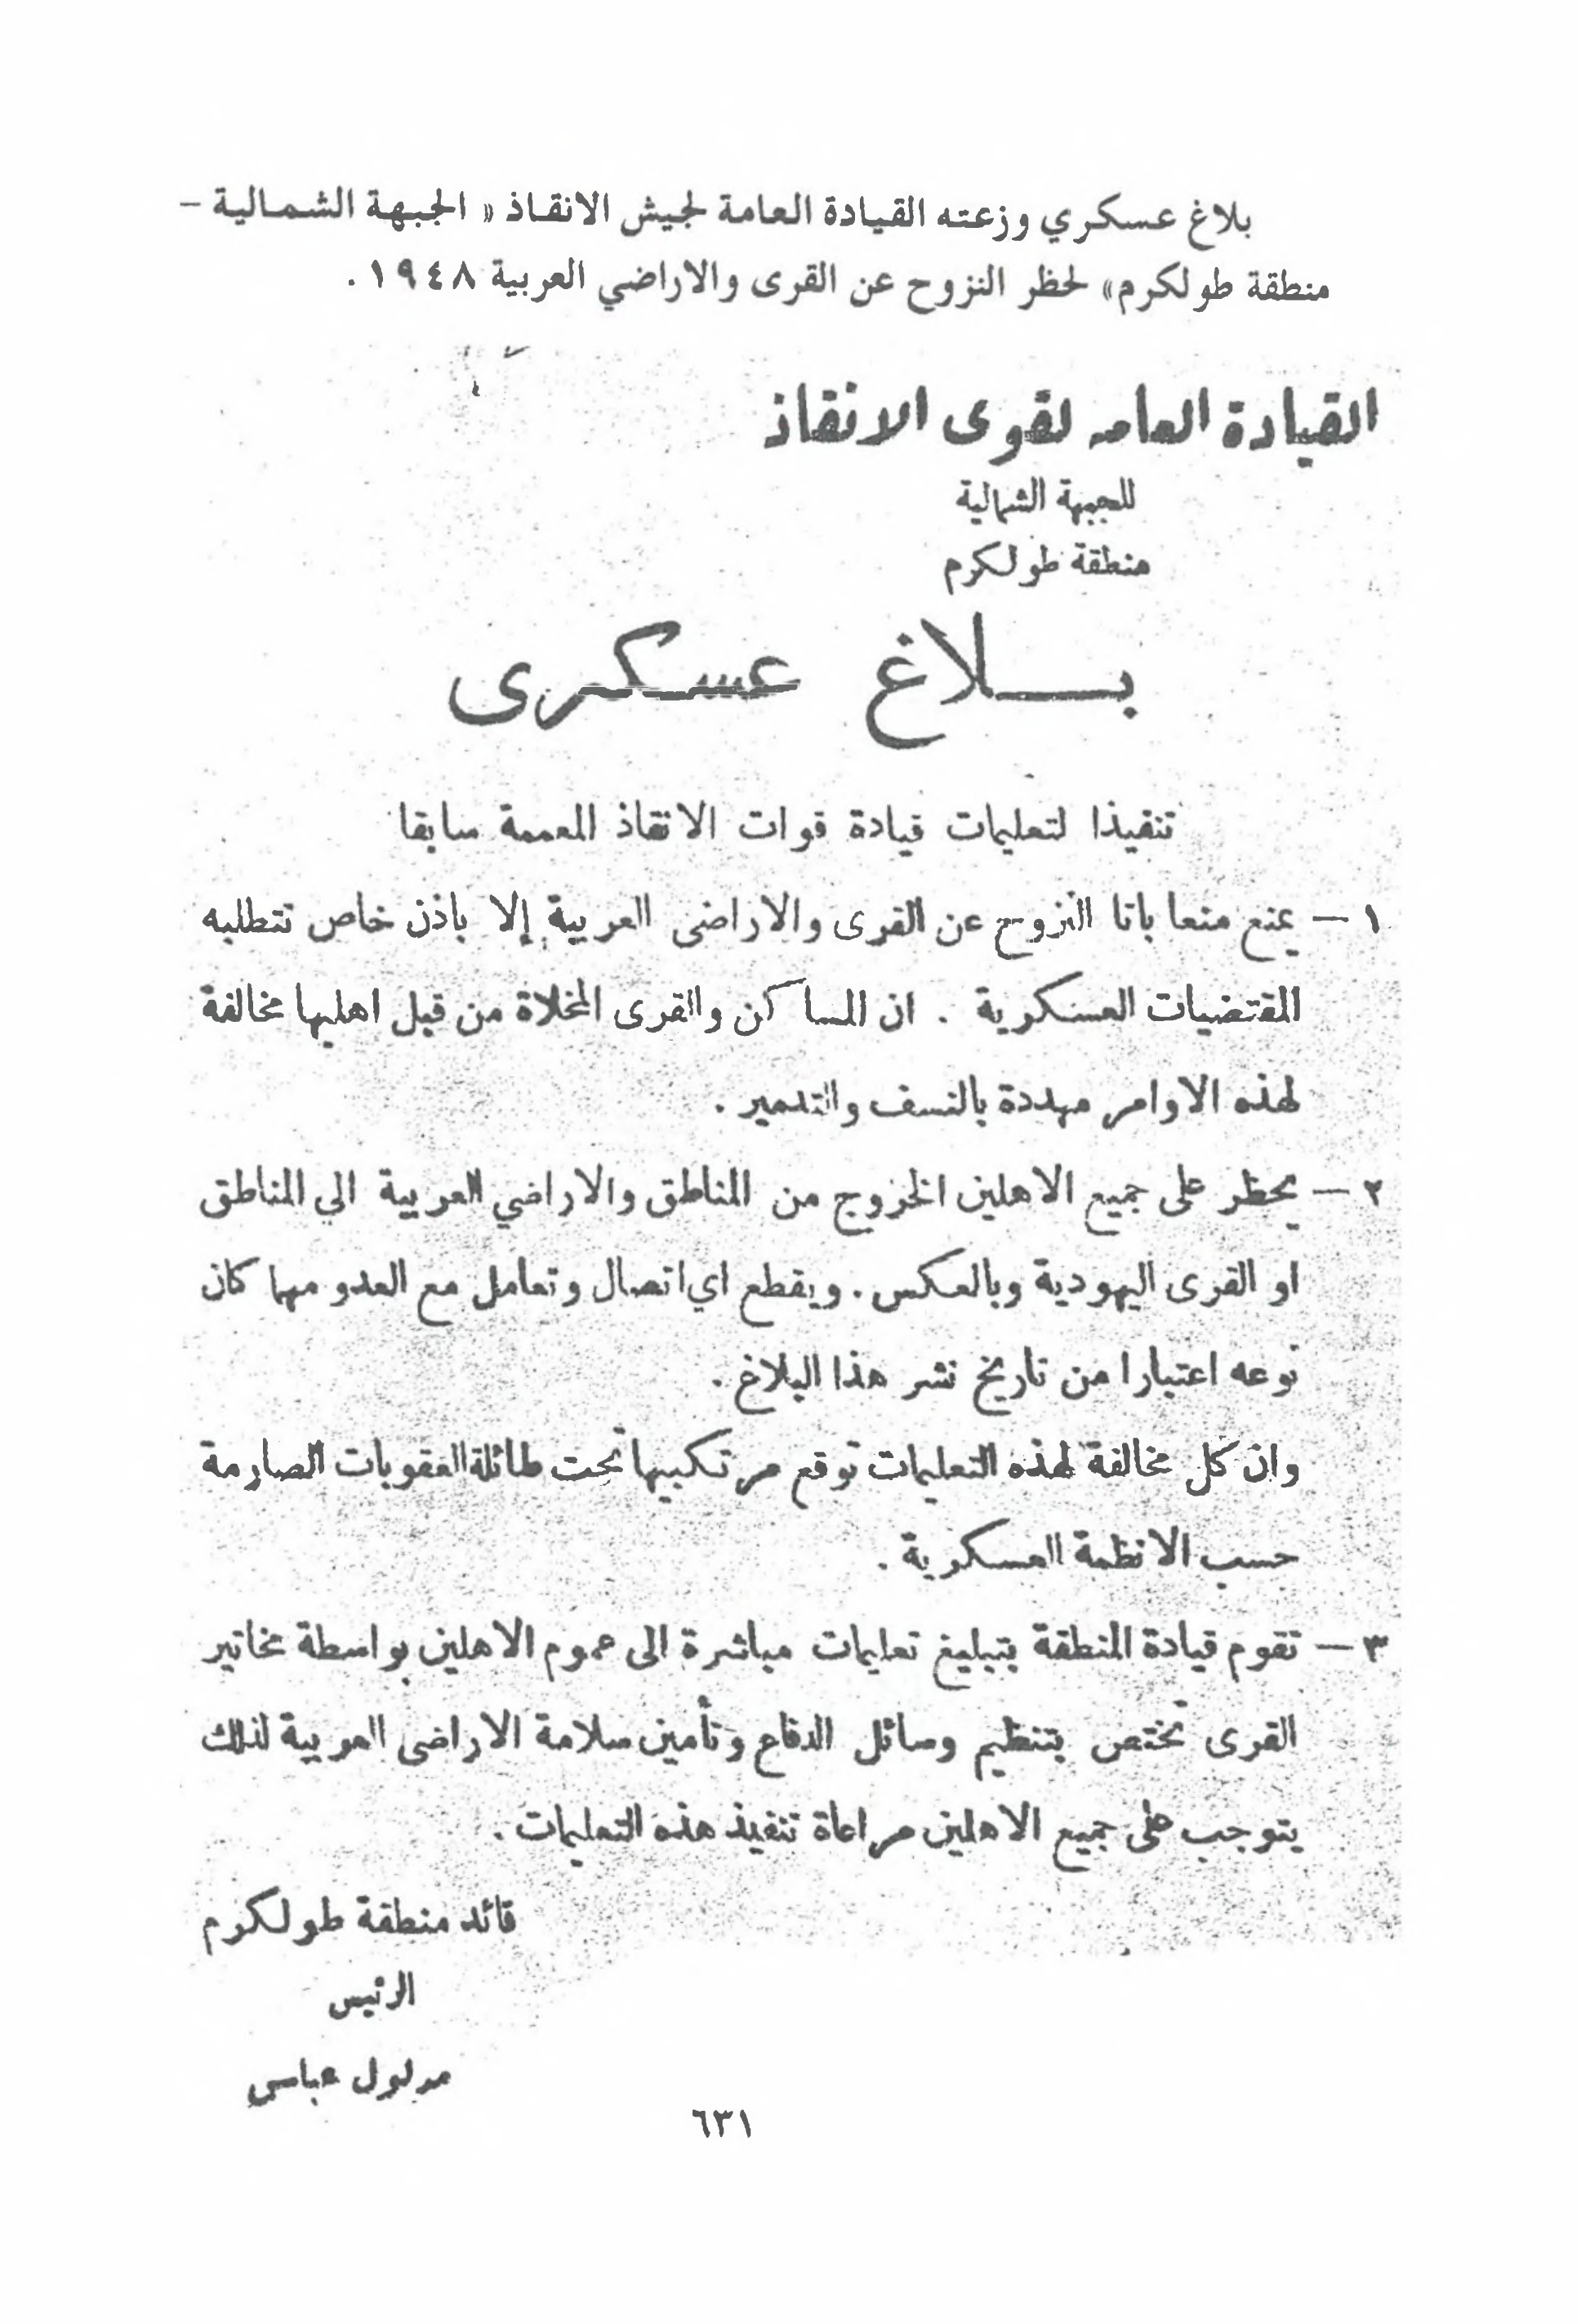 بلاغ عسكري وزعته القيادة العامة لجيش الانقاذ « الجبهة الشمالية –
منطقة طولكرم» لحظر النزوح عن القرى والاراضي العربية ١٩٤٨ .
القيادة العامه لقوى الانقاذ
للجبهة الشمالية
منطقة طولكرم
بلاغ عسكرى
تنفيذا لتعليمات قيادة قوات الانقاذ المعممة سابقا
١ – يمنع منعا باتا النزوح عن القرى والاراضى العربية إلا باذن خاص تتطلبه
المقتضيات العسكرية . ان المساكن والقرى المخلاة من قبل اهليها مخالفة
لهذه الاوامر مهددة بالنسف والتدمير .
٢ – يحظر على جميع الاهلين الخروج من المناطق والاراضي العربية الى المناطق
او القرى اليهودية وبالعكس . ويقطع اي اتصال وتعامل مع العدو مهما كان
نوعه اعتبارا من تاريخ نشر هذا البلاغ .
وان كل مخالفة لهذه التعليمات توقع مرتكبيها تحت طائلة العقوبات الصارمة
حسب الانظمة العسكرية .
٣ – تقوم قيادة المنطقة بتبليغ تعليمات مباشرة الى عموم الاهلين بواسطة مخاتير
القرى تختص بتنظيم وسائل الدفاع وتأمين سلامة الاراضى العربية لذلك
يتوجب على جميع الاهلين مراعاة تنفيذ هذه التعليمات .
قائد منطقة طولكرم
الرئيس
مدلول عباس
٦٣١